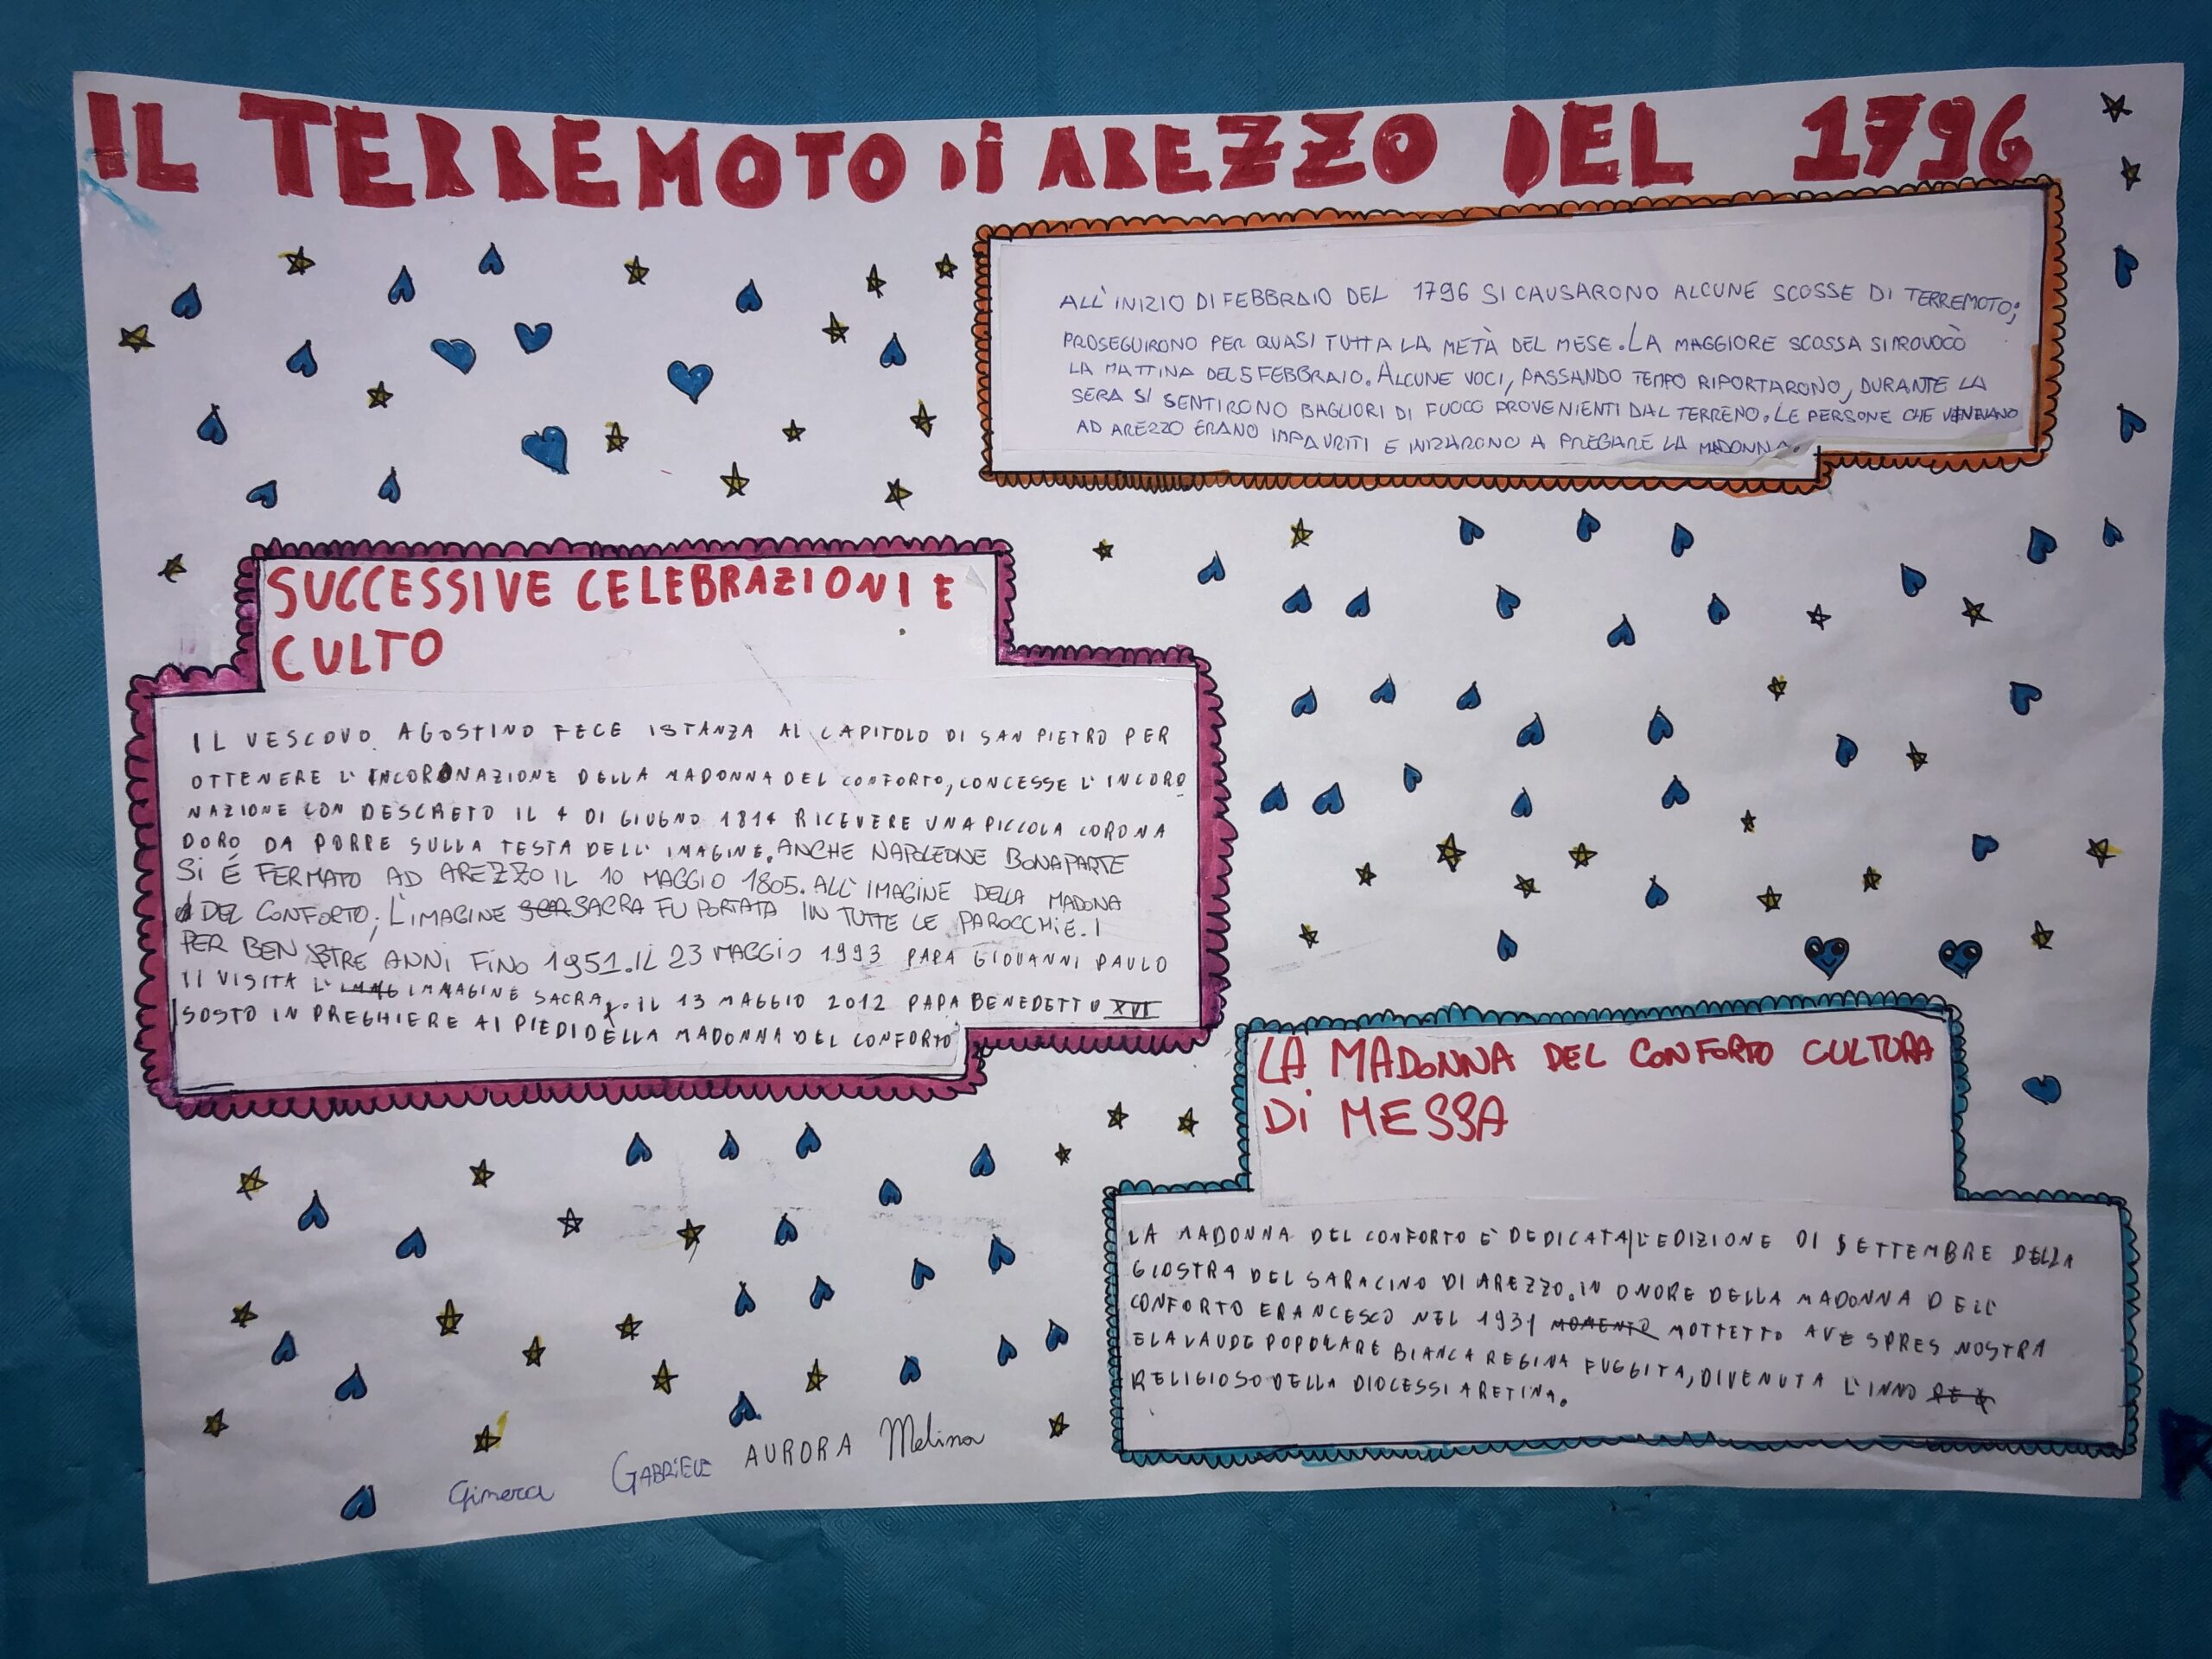 IL TERREMOTO Di AREZZO DEL 1796
ALL'INIZIO DI FEBBRAIO DEL 1796 SI CAUSARONO ALCUNE SCOSSE DI TERREMOTO;
PROSEGUIRONO PER QUASI TUTTA LA METÀ DEL MESE. LA MAGGIORE SCOSSA SI PROVOCÒ
LA MATTINA DEL 5 FEBBRAIO. ALCUNE VOCI, PASSANDO TEMPO RIPORTARONO, DURANTE LA
SERA SI SENTIRONO BAGLIORI DI FUOCO PROVENIENTI DAL TERRENO. LE PERSONE CHE VENIVANO
AD AREZZO ERANO IMPAURITI E INIZIARONO A PREGARE LA MADONNA.
SUCCESSIVE CELEBRAZIONI E
CULTO
IL VESCOVO AGOSTINO FECE ISTANZA AL CAPITOLO DI SAN PIETRO PER
OTTENERE L'INCORONAZIONE DELLA MADONNA DEL CONFORTO, CONCESSE L'INCORO
NAZIONE CON DESCRETO IL 4 DI GIUGNO 1814 RICEVERE UNA PICCOLA CORONA
DORO DA PORRE SULLA TESTA DELL'IMAGINE. ANCHE NAPOLEONE BONAPARTE
SI É FERMATO AD AREZZO IL 10 MAGGIO 1805. ALL'IMAGINE DELLA MADONA
DEL CONFORTO; L'IMAGINE SACRA FU PORTATA IN TUTTE LE PAROCCHIE. I
PER BEN TRE ANNI FINO 1951. IL 23 MAGGIO 1993 PAPA GIOVANNI PAULO
II VISITA L' IMMAGINE SACRA. IL 13 MAGGIO 2012 PAPA BENEDETTO XVI
SOSTO IN PREGHIERE AI PIEDI DELLA MADONNA DEL CONFORTO
LA MADONNA DEL CONFORTO CULTURA
Di MESSA
LA MADONNA DEL CONFORTO E' DEDICATA L'EDIZIONE DI SETTEMBRE DELLA
GIOSTRA DEL SARACINO DI AREZZO. IN ONORE DELLA MADONNA DELL'
CONFORTO FRANCESCO NEL 1931 MOMENTO MOTTETTO AVE SPRES NOSTRA
E LA LAUDE POPOLARE BIANCA REGINA FUGGITA, DIVENUTA L'INNO
RELIGIOSO DELLA DIOCESSI ARETINA.
Ginevra GABRiELE AURORA Melissa